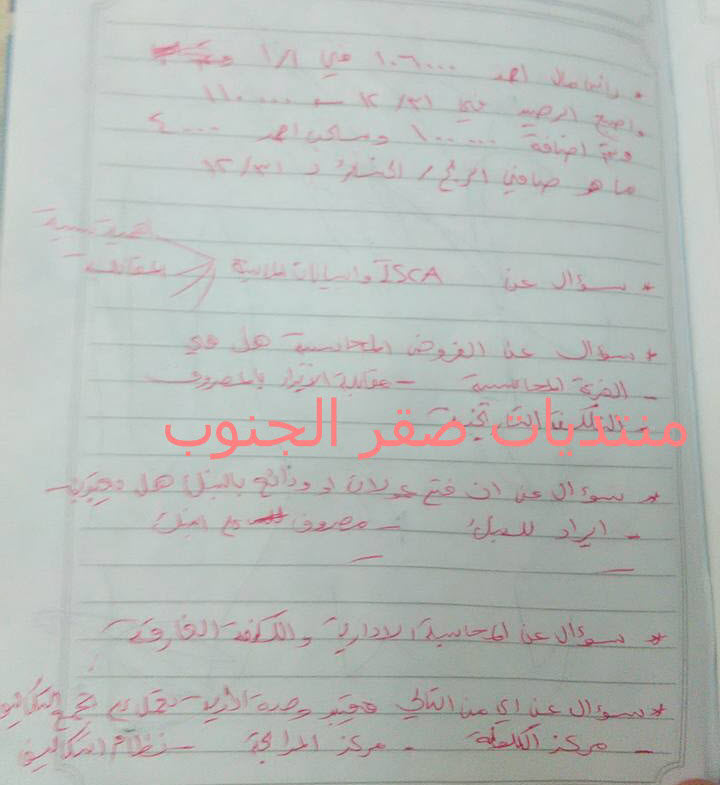 • راس مال احمد ١٠٦٠٠٠ في ١/١
واصبح الرصيد في ١٢/٣١ ١١٠٠٠٠
وتم اضافة ١٠٠٠٠ ومسحوبات احمد ٤٠٠٠
ما هو صافي الربح / الخسارة ١٢/٣١
* سؤال عن ISCA والبيانات المالية
* سؤال عن الفروض المحاسبية هل هي
- الفترة المحاسبية - مقابلة الايراد بالمصروف
- التكلفة التاريخية
منتديات صقر الجنوب
* سؤال عن ان فتح ودائع بالبنك هل تعتبر
- ايراد للبنك - مصروف ع البنك
* سؤال عن المحاسبة الادارية والتكلفة الغارقة
* سؤال عن اي من التالي تعتبر وحدة ادارية تجمع التكاليف
- مركز التكلفة - مركز المراجحة - نظام التكاليف